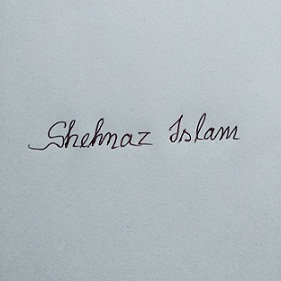 Shehnaz Islam